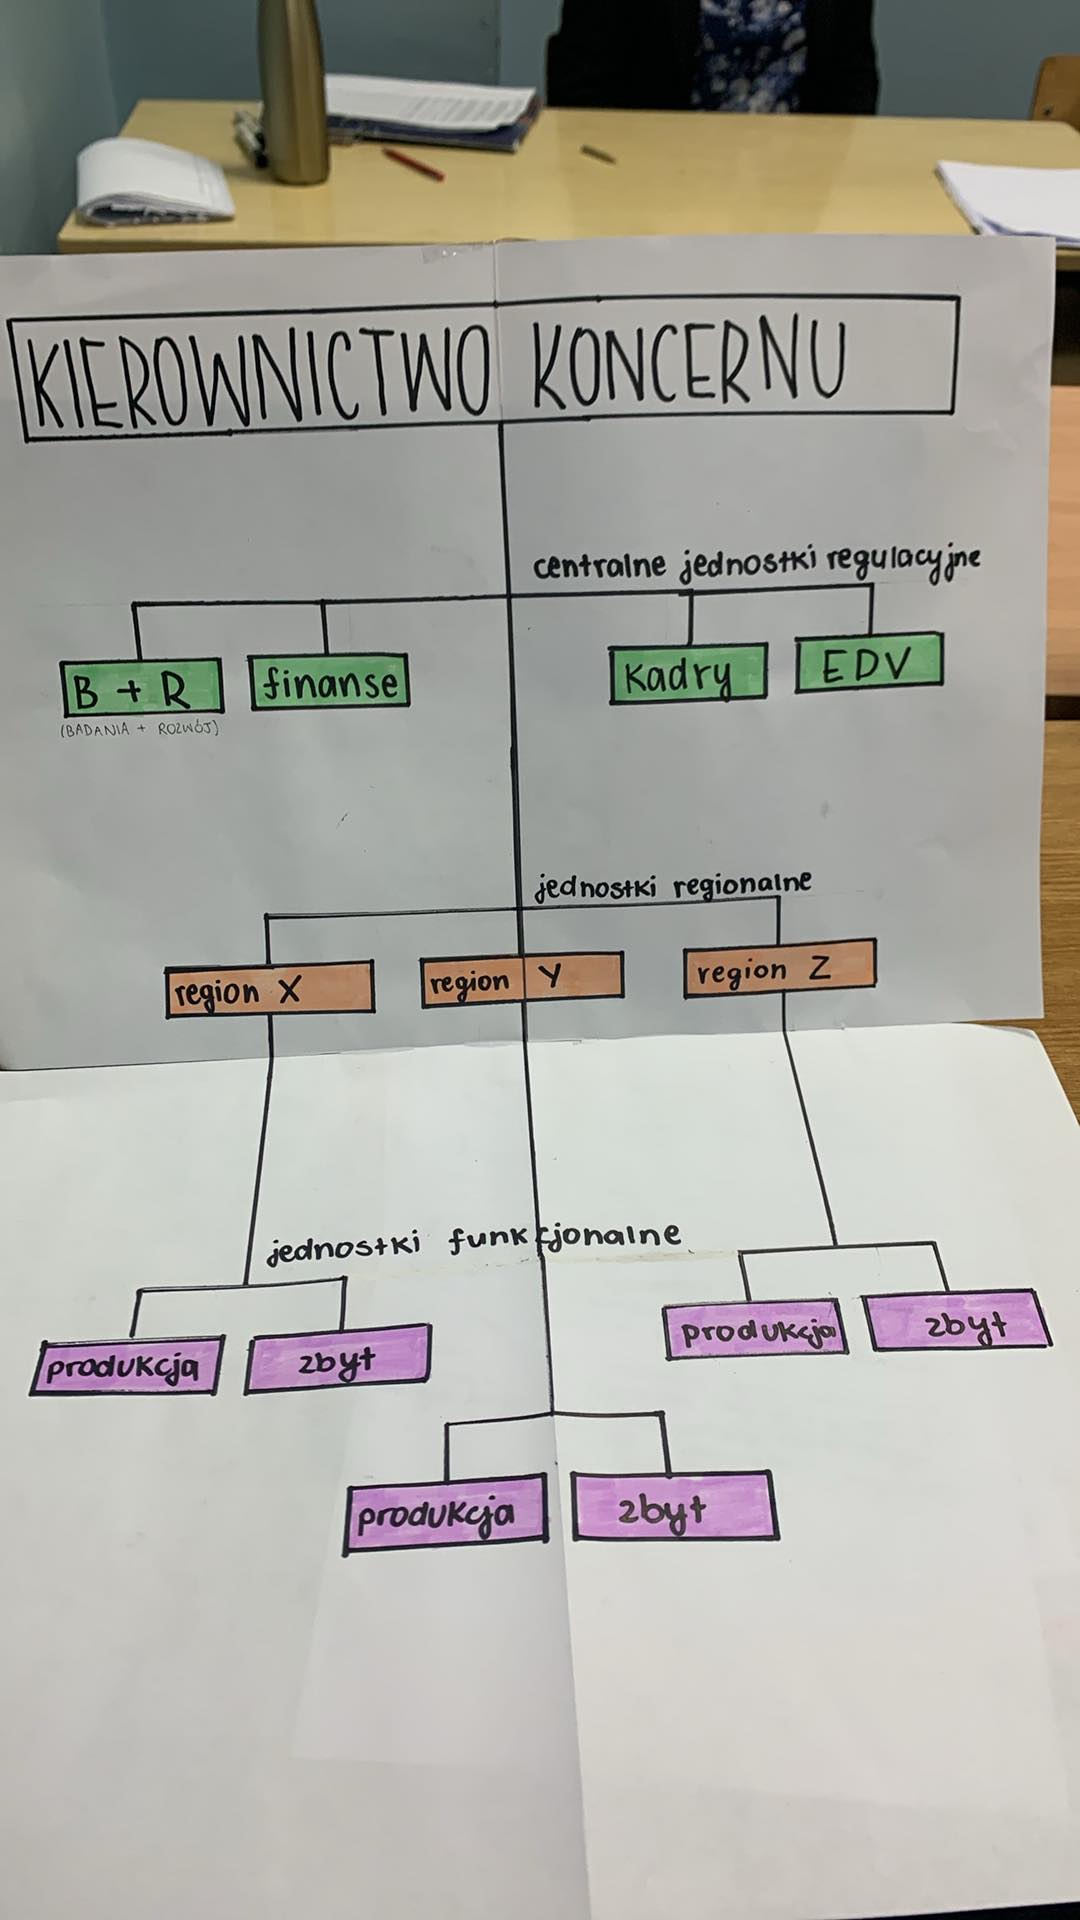 KIEROWNICTWO KONCERNU
centralne jednostki regulacyjne
B + R
finanse
Kadry
EDV
(BADANIA + ROZWÓJ)
jednostki regionalne
region X
region Y
region Z
jednostki funkcjonalne
produkcja
zbyt
produkcja
zbyt
produkcja
zbyt